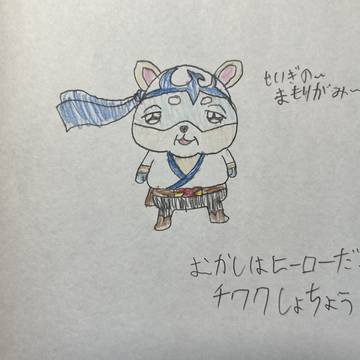 せいぎの〜
まもりがみ〜
むかしはヒーローだ
チワワしょちょう